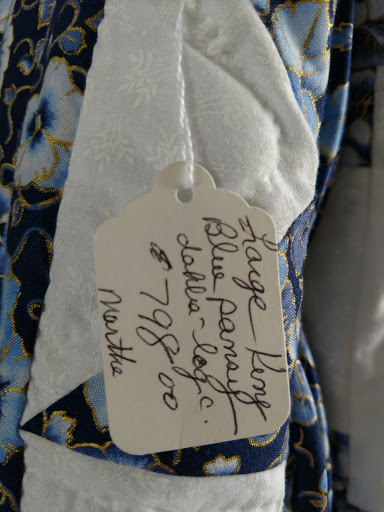 Large King
Blue pansy
dahlia - log c.
$798.00
Martha